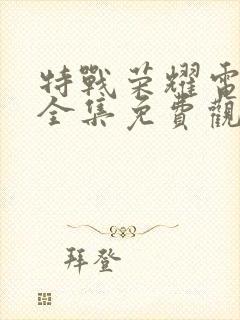 特戰荣耀電
全集免費觀
拜登